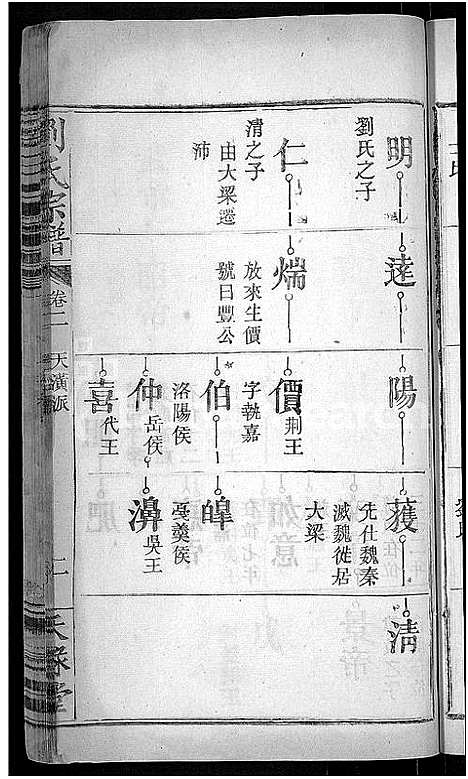 明
劉氏之子
達
陽
獲
先仕魏秦
滅魏徙居
大梁
清
仁
清之子
由大梁遷
沛
煓
放來生價
號曰豐公
價
荆王
字執嘉
伯
洛陽侯
㷛羹侯
皥
仲
岳侯
濞
吳王
喜
代王
劉氏宗譜
卷二
天潢派
二